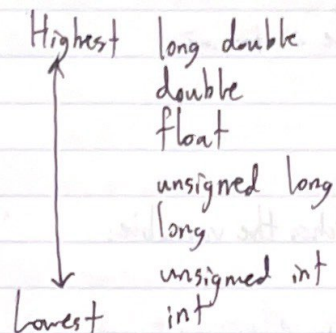 Highest long double
double
float
unsigned long
long
unsigned int
Lowest int